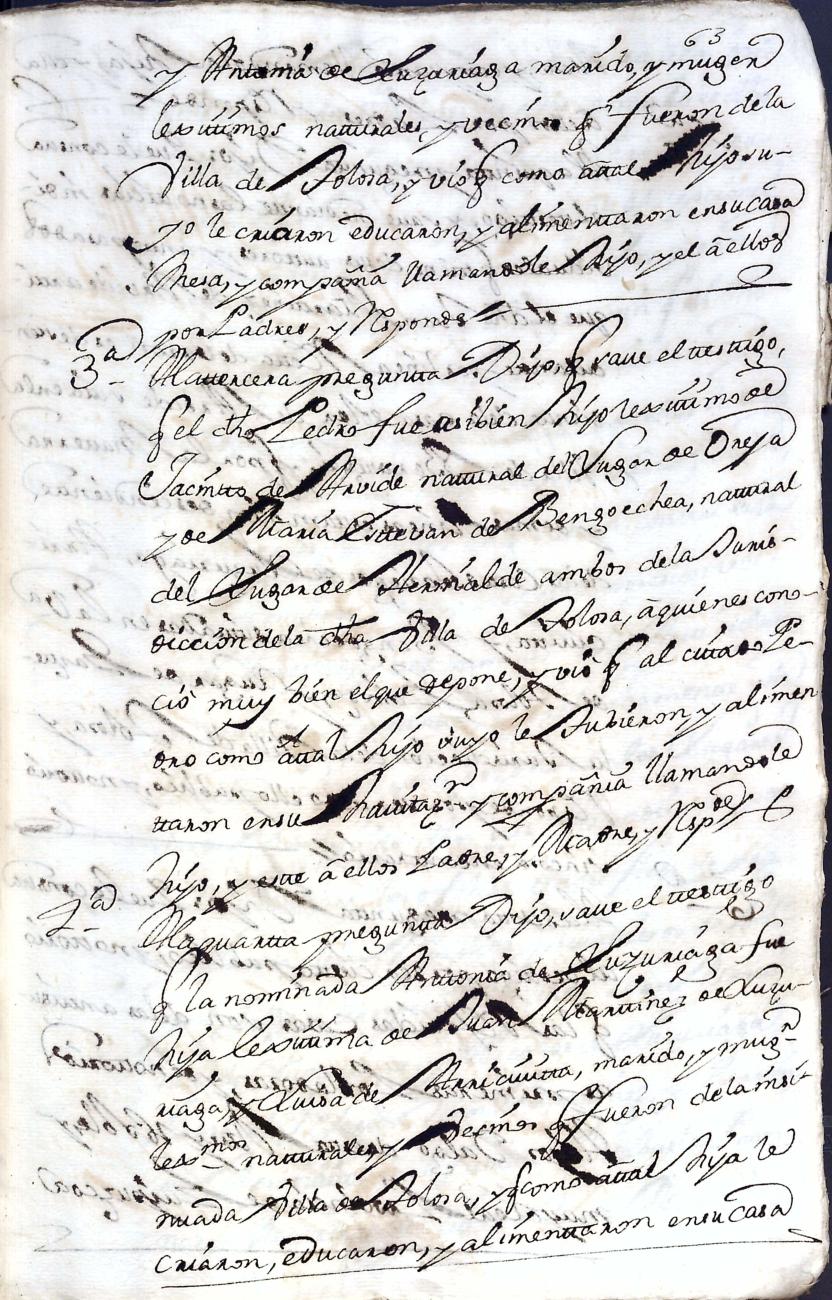 63
y Antonia de Luzuriaga marido, y muger
lexitimos naturales, y vecinos q.e fueron de la
Villa de Tolosa, y vio q como a tal hijo su-
yo le criaron educaron, y alimentaron en su casa
Mesa, y compañia llamandole hijo, y el a ellos
por Padres, y Responde
3.a A la tercera pregunta Dijo, q save el testigo,
q el dho Pedro fue asibien hijo lexitimo de
Jacinto de Arvide natural del Lugar de Oreja
y de Maria Estevan de Bengoechea, natural
del Lugar de Hernialde ambos de la Juris-
diccion de la dha Villa de Tolosa, a quienes cono-
ció muy bien el que depone, y vió q al citado Pe-
dro como a tal hijo suyo le tubieron y alimen
taron en su havitaz.n y compañia llamandole
hijo, y este a ellos Padre, y Madre, y Resp.de
4.a A la quarta pregunta Dijo, save el testigo
q la nominada Antonia de Luzuriaga fue
hija lexitima de Juan Martinez de Luzu-
riaga, y Luisa de Arricivita, marido, y mug.r
lex.mos naturales, y Vecinos q fueron de la insi-
nuada Villa de Tolosa, y q como a tal hija le
criaron, educaron, y alimentaron en su casa